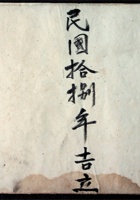 民國拾捌年吉立